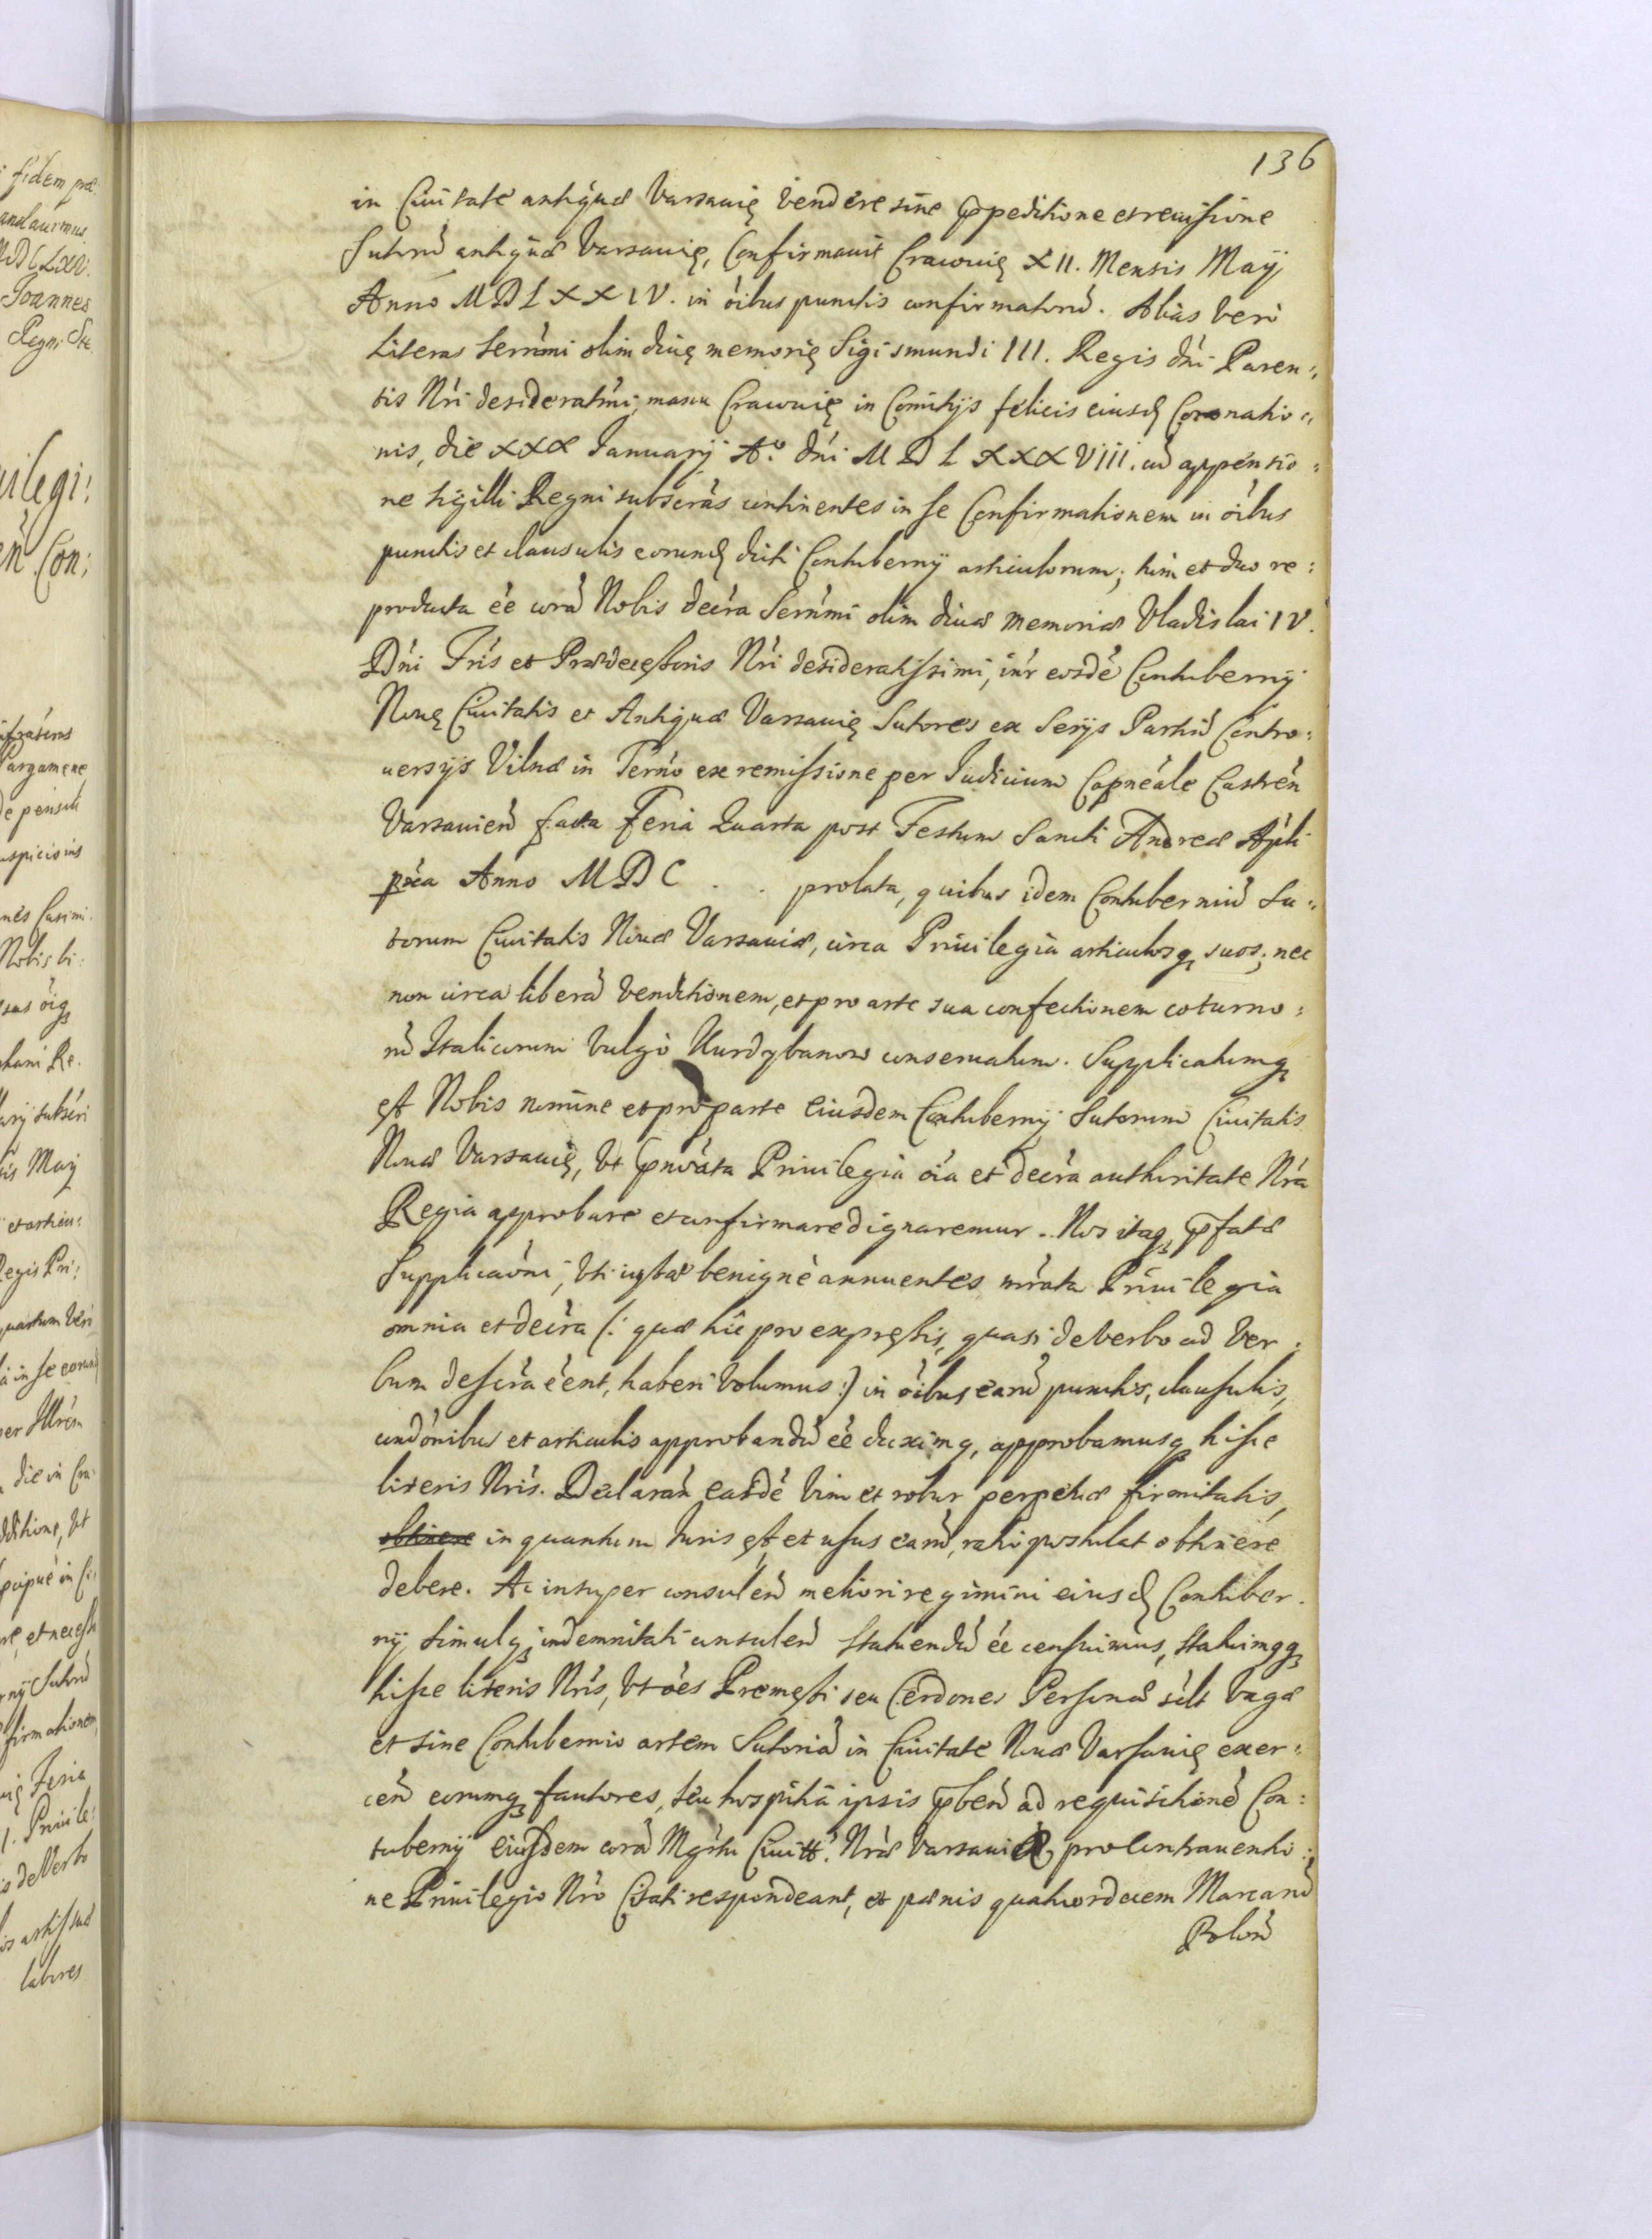 136
in Ciuitate antiquæ Varsauię vendere sine præpeditione et reuisione
Sutorū antiquæ Varsauię, Confirmauit Cracouię XII. Mensis Maÿ
Anno MDLXXIV. in óibus punctis confirmatorū. Alias vero
Literas Serńmi olim diuę memorię Sigismundi III. Regis dńi Paren:
tis Nŕi desideratmi, manu Cracouię in Comitijs felicis eiusd Coronatio:
nis, die XXX Januarÿ Aº. dńi MDLXXXVIII. cū appensio:
ne sigilli Regni subscŕas continentes in se Confirmationem in óibus
punctis et clausulis eorund dicti Contubernÿ articulorum; tum et duo re:
producta éé corā Nobis decŕa Serńmi olim diuæ memoriæ Vladislai IV.
Dńi Frís et Prædecessoris Nŕi desideratissimi, inŕ eosdē Contubernÿ
Nouę Ciuitatis et Antiquæ Varsauię Sutores ex Serÿs Partiū Contro:
uersÿs Vilnæ in Termo ex remissione per Judicium Capńeale Castreń
Varsauień facta Feria Quarta post Festum Sancti Andreæ Apli
pxa Anno MDC . . prolata, quibus idem Contuberniū Su:
torum Ciuitatis Nouæ Varsauiæ, circa Priuilegia articulosq suos; nec
non circa liberā venditionem, et pro arte sua confectionem coturno:
rū Italicorum vulgo Kurdybanow conseruatum. Supplicatumq
est Nobis nomine et pro parte eiusdem Contubernÿ Sutorum Ciuitatis
Nouæ Varsauię, vt præinserta Priuilegia óia et decŕa authoritate Nŕa
Regia approbare et confirmare dignaremur. Nos itaq, præfatæ
Supplicaóni, vti iustæ benigne annuentes mŕata Priuilegia
omnia et decŕa (: quæ hic pro expressis, quasi de verbo ad ver:
bum descŕa éént, haberi volumus :) in óibus earū punctis, clausulis,
condónibus et articulis approbandū éé duximq, approbamusq hisce
literis Nŕis. Declarań easdē vim et robur perpetuæ firmitatis,
obtinere in quantum Juris est et usus earū, ratio postulat obtinere
debere. Ac insuper consulēn meliori regimini eiusd Contuber:
nÿ simulq; indemnitati consulēn statuendū éé censuimus, statuimqq
hisce literis Nŕis, vt óes Premesti seu Cerdones Personæ silt vagæ
et sine Contubernio artem Sutoriā in Ciuitate Nouæ Varsauię exer:
ceń eorumq fautores, seu hospitia ipsis præbeń ad requisitionē Con:
tubernÿ eiusdem corā Mgŕtu Ciuitt. Nŕæ Varsauiæ, pro Contrauentio:
ne Priuilegio Nŕo Citati respondeant, et pænis quatuordecem Marcarū
Polon